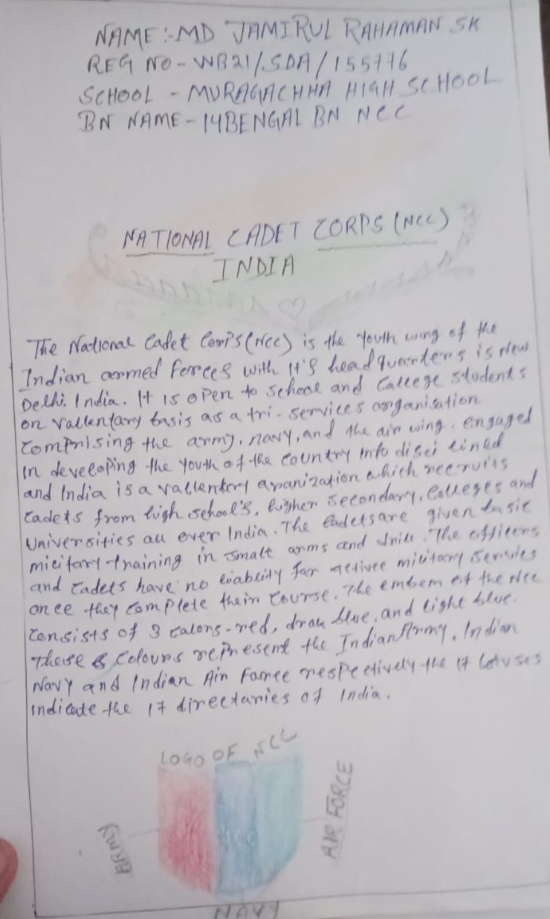 NAME:-MD JAMIRUL RAHAMAN SK
REG NO-WB21/SDA/155776
SCHOOL - MURAGACHHA HIGH SCHOOL
BN NAME-14BENGAL BN NCC
NATIONAL CADET CORPS (NCC)
INDIA
The National Cadet Corps (NCC) is the youth wing of the
Indian armed forces with it's headquarters is New
Delhi. India. It is open to school and College students
on vallentary basis as a tri-services organisation
Comprising the army, navy, and the air wing, engaged
in developing the youth of the country into disci lined
and India is a vallentory aranization which recruits
Cadets from high school's, higher secondary, Colleges and
Universities all over India. The Cadets are given basic
military training in small arms and drill. The officers
and Cadets have no liability for active military services
once they complete their Course. The emblem of the NCC
Consists of 3 Colors-red, drak blue, and light blue.
These 3 Colours represent the Indian Army, Indian
Navy and Indian Air Force respectively the 17 lotuses
indicate the 17 directaries of India.
LOGO OF NCC
ARMY
AIR FORCE
NAVY